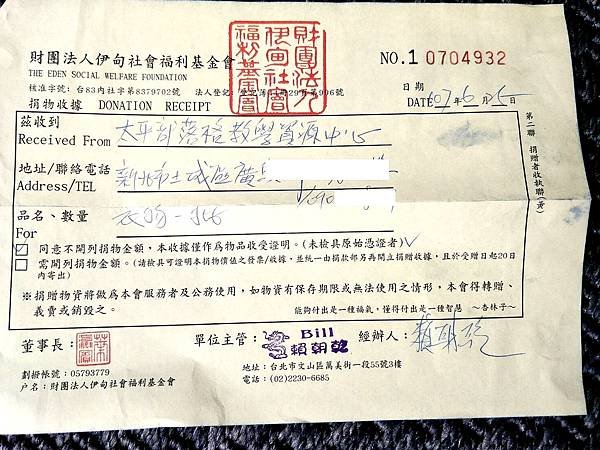 財團法人伊甸社會福利基金會
THE EDEN SOCIAL WELFARE FOUNDATION
核准字號：台83內社字第8379702號 法人登記：登記簿
29
906號
財團法人
伊甸社會
福利基金會
NO.1 0704932
捐物收據 DONATION RECEIPT
日期
DATE 107年6月25日
茲收到
Received From 太平部落格教學資源中心
地址/聯絡電話 新北市土城區廣
Address/TEL
品名、數量 衣物一批
For
同意不開列捐物金額，本收據僅作為物品收受證明。(未檢具原始憑證者)
需開列捐物金額。(請檢具可證明本捐物價值之發票/收據，並統一由捐款部另再開立捐贈收據，且於受贈日起20日
內寄出)
※捐贈物資將做為本會服務者及公務使用，如物資有保存期限或無法使用之情形，本會得轉贈、
義賣或銷毀之。
能夠付出是一種福氣，懂得付出是一種智慧 ～杏林子～
第二聯 捐贈者收執聯(黃)
董事長：
單位主管： Bill
賴朝乾
經辦人： 賴朝乾
劃撥帳號：05793779
戶名：財團法人伊甸社會福利基金會
地址：台北市文山區萬美街一段55號3樓
電話：(02)2230-6685